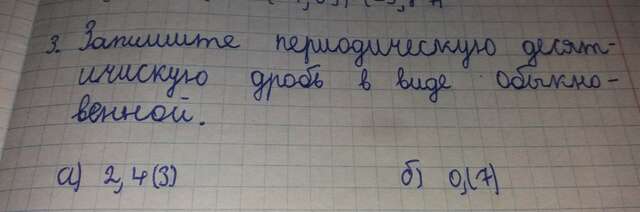 3. Запишите периодическую десят-
ичискую дробь в виде обыкно-
венной.
а) 2,4(3) б) 0,(7)